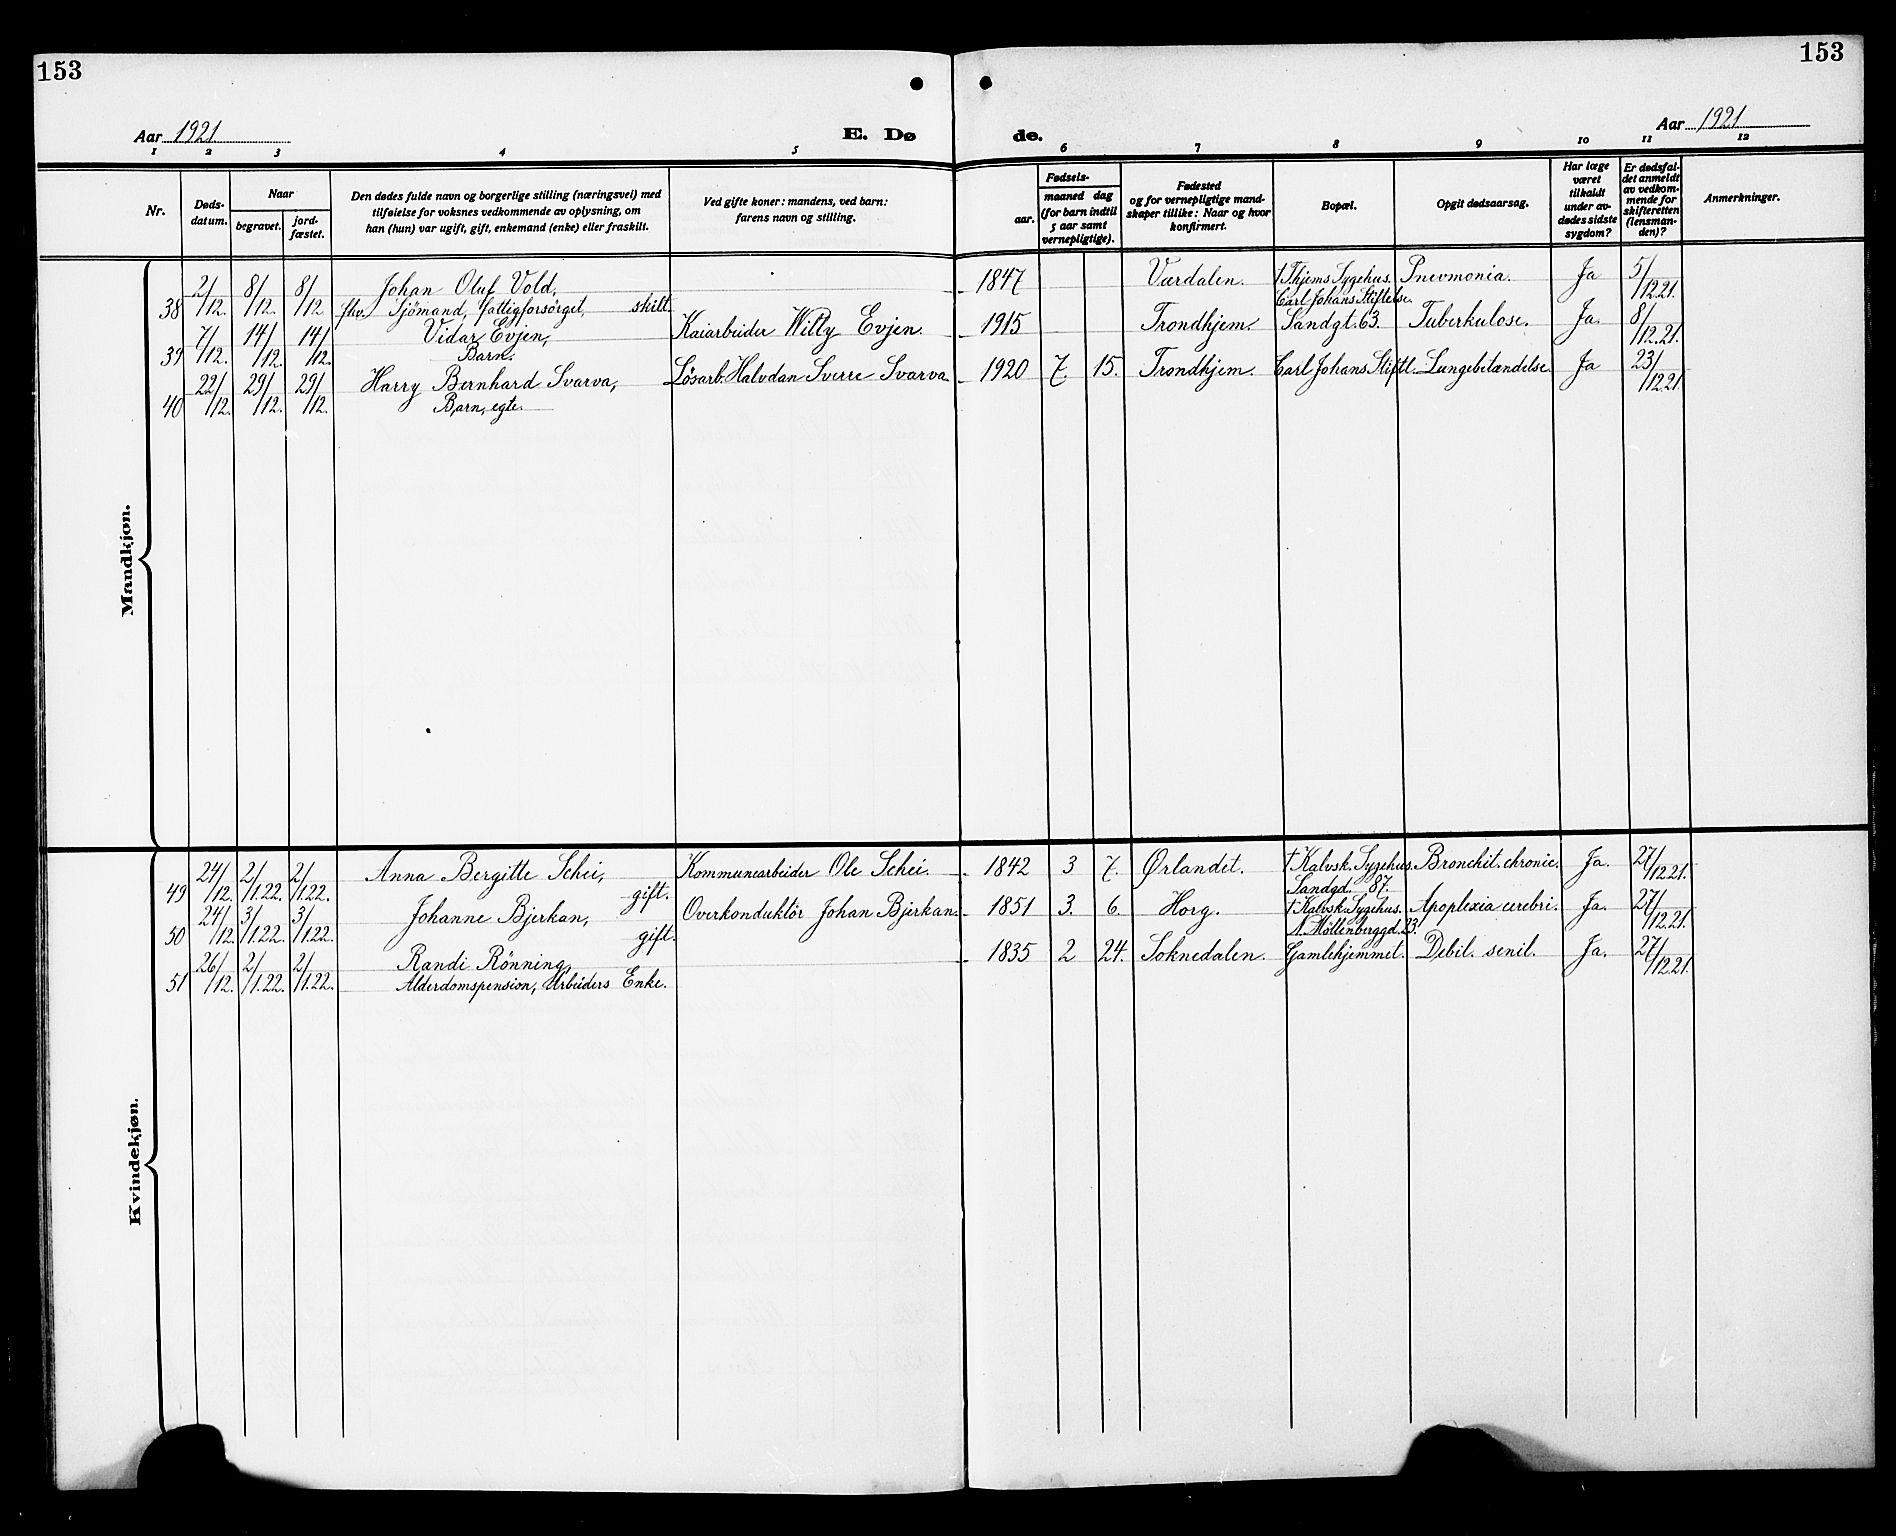 153
153
Aar 1921
E. Dø
de.
Aar 1921
1 2 3 4 5 6 7 8 9 10 11 12
Nr.
Døds-
datum.
Naar
begravet.
jord-
fæstet.
Den dødes fulde navn og borgerlige stilling (næringsvei) med
tilføielse for voksnes vedkommende av oplysning, om
han (hun) var ugift, gift, enkemand (enke) eller fraskilt.
Ved gifte koner: mandens, ved barn:
farens navn og stilling.
Fødsels-
aar.
maaned dag
(for barn indtil
5 aar samt
vernepligtige).
Fødested
og for vernepligtige mand-
skaper tillike: Naar og hvor
konfirmert.
Bopæl.
Opgit dødsaarsag.
Har læge
været
tilkaldt
under av-
dødes sidste
sygdom?
Er dødsfal-
det anmeldt
av vedkom-
mende for
skifteretten
(lensman-
den)?
Anmerkninger.
Mandkjøn.
38 2/12. 8/12. 8/12 Johan Oluf Vold, 1847 Værdalen. † Thjems Sygehus. Pnevmonia. Ja 5/12.21.
fhv. Sjömand, fattigforsørget, skilt. Carl Johans Stiftelse.
39 7/12. 14/12. 14/12. Vidar Evjen, Kaiarbeider Willy Evjen. 1915 Trondhjem. Sandgt. 63. Tuberkulose. Ja. 8/12.21.
Barn.
40 22/12. 29/12. 29/12. Harry Bernhard Svarva, Løsarb. Halvdan Sverre Svarva 1920 7. 15. Trondhjem. Carl Johans Stiftl. Lungebetændelse Ja 23/12.21
Barn, egte.
Kvindekjøn.
49 24/12. 2/1.22. 2/1.22. Anna Bergitte Schei, Kommunearbeider Ole Schei. 1842 3 7. Ørlandet. † Kalvsk. Sygehus. Bronchit. chronic. Ja. 27/12.21.
gift. Sandgd. 87.
50 24/12. 3/1.22. 3/1.22. Johanne Bjerkan, Overkonduktör Johan Bjerkan. 1851 3. 6. Horg. † Kalvsk. Sygehus. Apoplexia cerebri. Ja. 27/12.21.
gift. N. Möllenberggd. 23.
51 26/12. 2/1.22. 2/1.22. Randi Rönning, 1835 2 24. Soknedalen. Gamlehjemmet. Debil. senil. Ja. 27/12.21.
Alderdomspension, Arbeiders Enke.